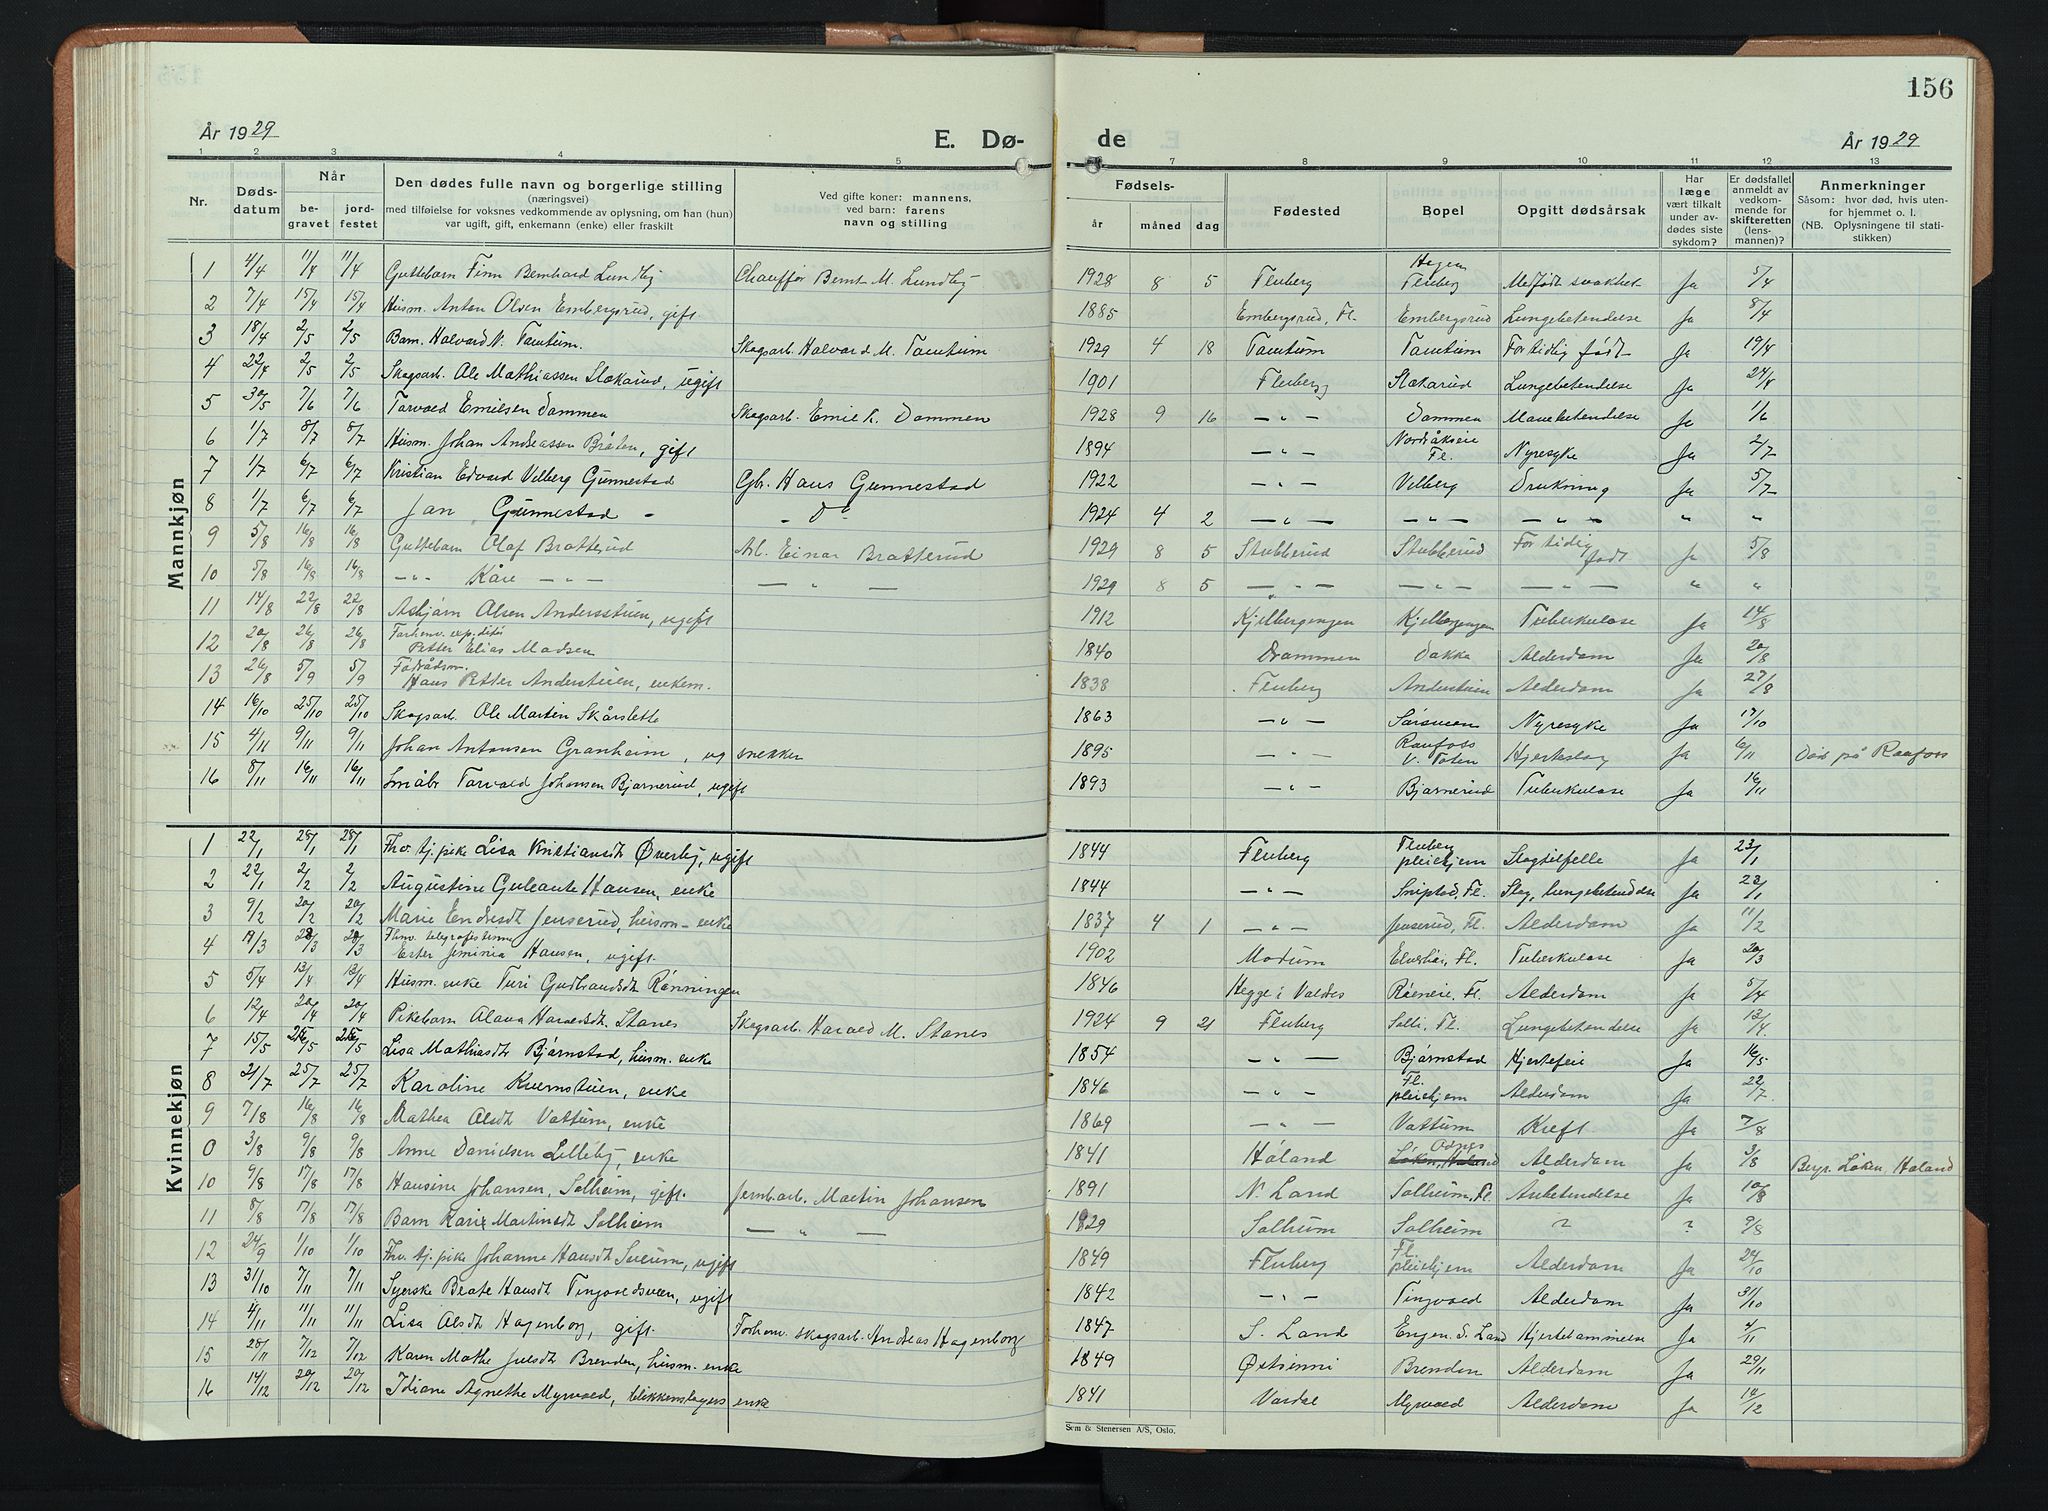 156
År 1929 E. Dø- de År 1929
1 2 3 4 5 7 8 9 10 11 12 13
Nr.
Døds-datum
Når
be-gravet
jord-festet
Den dødes fulle navn og borgerlige stilling
(næringsvei)
med tilføielse for voksnes vedkommende av oplysning, om han (hun)
var ugift, gift, enkemann (enke) eller fraskilt
Ved gifte koner: mannens,
ved barn: farens
navn og stilling
Fødsels-
år måned dag
Fødested
Bopel
Opgitt dødsårsak
Har læge vært tilkalt under av-dødes siste sykdom?
Er dødsfallet anmeldt av vedkom-mende for skifteretten (lens-mannen)?
Anmerkninger
Såsom: hvor død, hvis uten-
for hjemmet o. l.
(NB. Oplysningene til stati-
stikken)
Mannkjøn
1 4/4 11/4 11/4 Guttebarn Finn Bernhard Lundby Chauffør Bernt M. Lundby 1928 8 5 Fluberg Fluberg Medfødt svakhet Ja 5/4
2 7/4 15/4 15/4 Husm. Anton Olsen Embergsrud, gift 1885 Embergsrud, Fl. Embergsrud Lungebetendelse Ja 8/4
3 18/4 2/5 2/5 Barn. Halvard N. Tamtum. Skogsarb. Halvard M. Tamtum 1929 4 18 Tamtum Tamtum For tidlig født Ja 19/4
4 22/4 2/5 2/5 Skogsarb. Ole Mathiassen Slækarud, ugift 1901 Fluberg Slækarud Lungebetendelse Ja 24/4
5 30/5 7/6 7/6 Torvald Emilsen Dammen Skogsarb. Emil L. Dammen 1928 9 16 — " — Dammen Mavebetendelse Ja 1/6
6 1/7 8/7 8/7 Husm. Johan Andreassen Bråten, gift 1894 — " — Nordråkseie Fl. Nyresyke Ja 2/7
7 1/7 6/7 6/7 Kristian Edvard Velberg Gunnestad Gbr. Hans Gunnestad 1922 — " — Velberg Drukning Ja 5/7
8 1/7 6/7 6/7 Jan Gunnestad - - do 1924 4 2 — " — — " — — " — " "
9 5/8 16/8 16/8 Guttebarn Olaf Bratterud Arb. Einar Bratterud 1929 8 5 Stubberud Stubberud For tidlig født Ja 5/8
10 5/8 16/8 16/8 — " — Kåre — " — — " — 1929 8 5 — " — — " — — " — " "
11 14/8 22/8 22/8 Asbjørn Olsen Andersstuen, ugift 1912 Kjelbergengen Kjelbergengen Tuberkulose Ja 14/8
12 20/8 26/8 26/8 Forhenv. expeditør Petter Elias Madsen 1840 Drammen Dokka Alderdom Ja 20/8
13 26/8 5/9 5/9 Fødrådsm. Hans Petter Anderstuen, enkem. 1838 Fluberg Anderstuen Alderdom Ja 27/8
14 16/10 25/10 25/10 Skogsarb. Ole Martin Skårslette 1863 — " — Sørsveen Nyresyke Ja 17/10
15 4/11 9/11 9/11 Johan Antonsen Granheim, ug snekker 1895 — " — Raufoss V. Toten Hjerteslag Ja 6/11 Død på Raufoss
16 8/11 16/11 16/11 Småbr. Torvald Johansen Bjørnerud, ugift 1893 — " — Bjørnerud Tuberkulose Ja 16/11
Kvinnekjøn
1 22/1 28/1 28/1 Fhv. tj. pike Lisa Kristiansdt Øverby, ugift 1844 Fluberg Fluberg pleiehjem Slagtilfelle Ja 23/1
2 22/1 2/2 2/2 Augustine Guleante Hansen, enke 1844 — " — Sniptad, Fl. Slag, lungebetendelse Ja 23/1
3 9/2 20/2 20/2 Marie Endresdt Jenserud, husm-enke 1837 4 1 — " — Jenserud, Fl. Alderdom Ja 11/2
4 17/3 28/3 28/3 Fhnv. telegrafistinne Ester Jiminia Hansen, ugift. 1902 Modum Elverhøi, Fl. Tuberkulose Ja 20/3
5 5/4 13/4 13/4 Husm. enke Turi Gudbrandsdt Rønningen 1846 Hegge i Valdres Røeneie, Fl. Alderdom Ja 5/4
6 12/4 20/4 20/4 Pikebarn Alava Haraldsdt. Stanes Skogsarb. Harald M. Stanes 1924 9 21 Fluberg Solli, Fl. Lungebetendelse Ja 13/4
7 15/5 25/5 25/5 Lisa Mathiasdt Bjørnstad, husm. enke 1854 — " — Bjørnstad Hjertefeil Ja 16/5
8 21/7 25/7 25/7 Karoline Kvernstuen, enke 1846 — " — Fl. pleiehjem Alderdom Ja 22/7
9 7/8 16/8 16/8 Mathea Olsdt Vattum, enke 1869 — " — Vattum Kreft Ja 7/8
0 3/8 9/8 9/8 Anne Danielsen Lilleby, enke 1841 Høland Odnes Løken, Høland Alderdom Ja 3/8 Begr. Løken, Høland
10 9/8 17/8 17/8 Hansine Johansen, Solheim, gift. Jernbarb. Martin Johansen 1891 N. Land Solheim, Fl. Anbetendelse Ja 10/8
11 8/8 17/8 17/8 Barn Karie Martinsdt Solheim — " — 1929 Solheim Solheim ? ? 9/8
12 24/9 1/10 1/10 Fhv. tj. pike Johanne Hansdt Sveum, ugift 1849 Fluberg Fl. pleiehjem Alderdom Ja 24/10
13 31/10 7/11 7/11 Syerske Beate Hansdt Tingvoldsveen, ugift 1842 — " — Tingvold Alderdom Ja 31/10
14 4/11 11/11 11/11 Lisa Olsdt Hagenborg, gift. Forhenv. skogsarb. Andreas Hagenborg 1847 S. Land Engen, S. Land Hjertelammelse Ja 4/11
15 28/11 7/12 7/12 Karen Mathe Julsdt Brenden, husm. enke 1849 Østsinni Brenden Alderdom Ja 29/11
16 14/12 20/12 20/12 Idiane Agnethe Myrvold, blikkenslagers enke 1841 Vardal Myrvold Alderdom Ja 14/12
Sem & Stenersen A/S, Oslo.